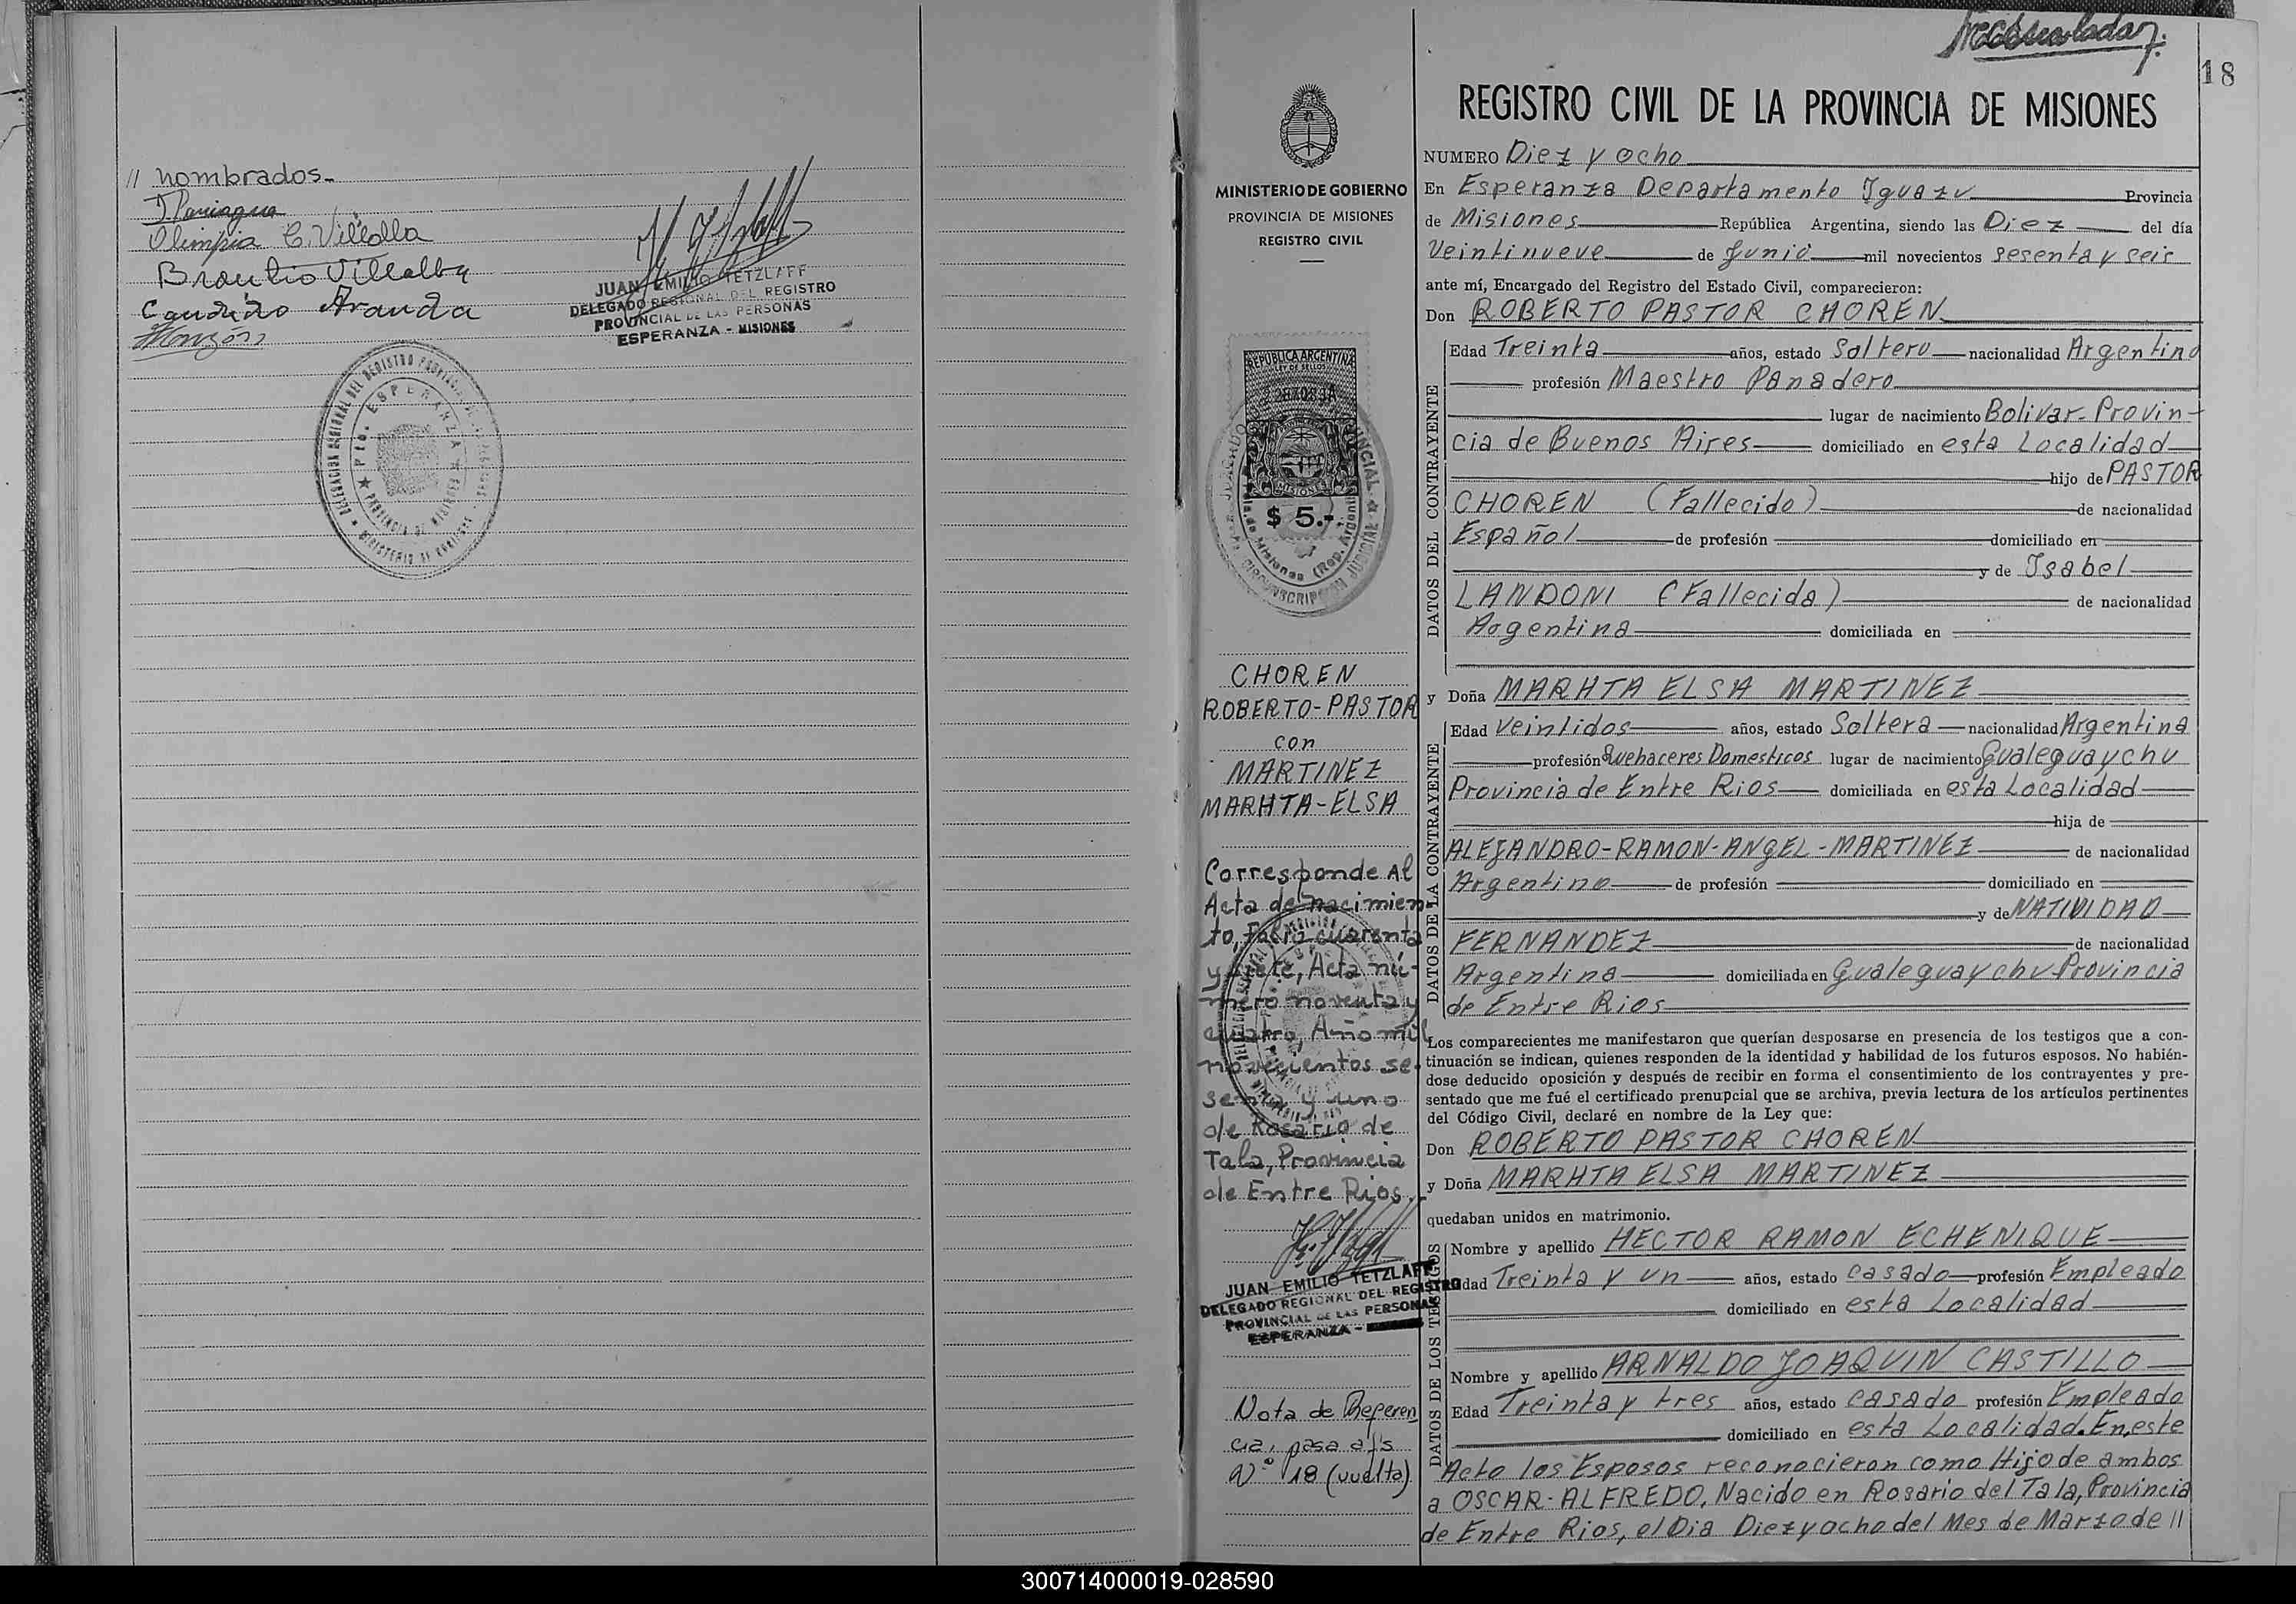 // nombrados.-
Olimpia C. Villalba
Braulio Villalba
Candido Aranda
JUAN EMILIO TETZLAFF
DELEGADO REGIONAL DEL REGISTRO
PROVINCIAL DE LAS PERSONAS
ESPERANZA - MISIONES
PTO. ESPERANZA
PROVINCIA DE MISIONES
18
MINISTERIO DE GOBIERNO
PROVINCIA DE MISIONES
REGISTRO CIVIL
REPUBLICA ARGENTINA
LEY DE SELLOS
MISIONES
$ 5.-
CHOREN
ROBERTO-PASTOR
con
MARTINEZ
MARHTA-ELSA
Corresponde Al
Acta de nacimien-
to, Folio cuarenta
y siete, Acta nú-
mero noventa y
cuatro, Año mil
novecientos se-
senta y uno
de Rosario de
Tala, Provincia
de Entre Rios.-
JUAN EMILIO TETZLAFF
DELEGADO REGIONAL DEL REGISTRO
PROVINCIAL DE LAS PERSONAS
ESPERANZA -
Nota de Referen
cia, pasa a fs
Nº 18 (vuelta)
REGISTRO CIVIL DE LA PROVINCIA DE MISIONES
NUMERO Diez y ocho
En Esperanza Departamento Iguazu Provincia
de Misiones República Argentina, siendo las Diez del día
Veintinueve de Junio mil novecientos sesenta y seis
ante mí, Encargado del Registro del Estado Civil, comparecieron:
Don ROBERTO PASTOR CHOREN
DATOS DEL CONTRAYENTE
Edad Treinta años, estado Soltero nacionalidad Argentino
profesión Maestro Panadero
lugar de nacimiento Bolivar-Provin-
cia de Buenos Aires domiciliado en esta Localidad
hijo de PASTOR
CHOREN (Fallecido) de nacionalidad
Español de profesión domiciliado en
y de Isabel
LANDONI (Fallecida) de nacionalidad
Argentina domiciliada en
y Doña MARHTA ELSA MARTINEZ
DATOS DE LA CONTRAYENTE
Edad Veintidos años, estado Soltera nacionalidad Argentina
profesión Quehaceres Domesticos lugar de nacimiento Gualeguaychu
Provincia de Entre Rios domiciliada en esta Localidad
hija de
ALEJANDRO-RAMON-ANGEL-MARTINEZ de nacionalidad
Argentino de profesión domiciliado en
y de NATIVIDAD
FERNANDEZ de nacionalidad
Argentina domiciliada en Gualeguaychu-Provincia
de Entre Rios
Los comparecientes me manifestaron que querían desposarse en presencia de los testigos que a con-
tinuación se indican, quienes responden de la identidad y habilidad de los futuros esposos. No habién-
dose deducido oposición y después de recibir en forma el consentimiento de los contrayentes y pre-
sentado que me fué el certificado prenupcial que se archiva, previa lectura de los artículos pertinentes
del Código Civil, declaré en nombre de la Ley que:
Don ROBERTO PASTOR CHOREN
y Doña MARHTA ELSA MARTINEZ
quedaban unidos en matrimonio.
DATOS DE LOS TESTIGOS
Nombre y apellido HECTOR RAMON ECHENIQUE
Edad Treinta y un años, estado casado profesión Empleado
domiciliado en esta Localidad
Nombre y apellido ARNALDO JOAQUIN CASTILLO
Edad Treinta y tres años, estado casado profesión Empleado
domiciliado en esta Localidad. En este
Acto los Esposos reconocieron como Hijo de ambos
a OSCAR-ALFREDO, Nacido en Rosario del Tala, Provincia
de Entre Rios, el Dia Diez y ocho del Mes de Marzo de //
300714000019-028590